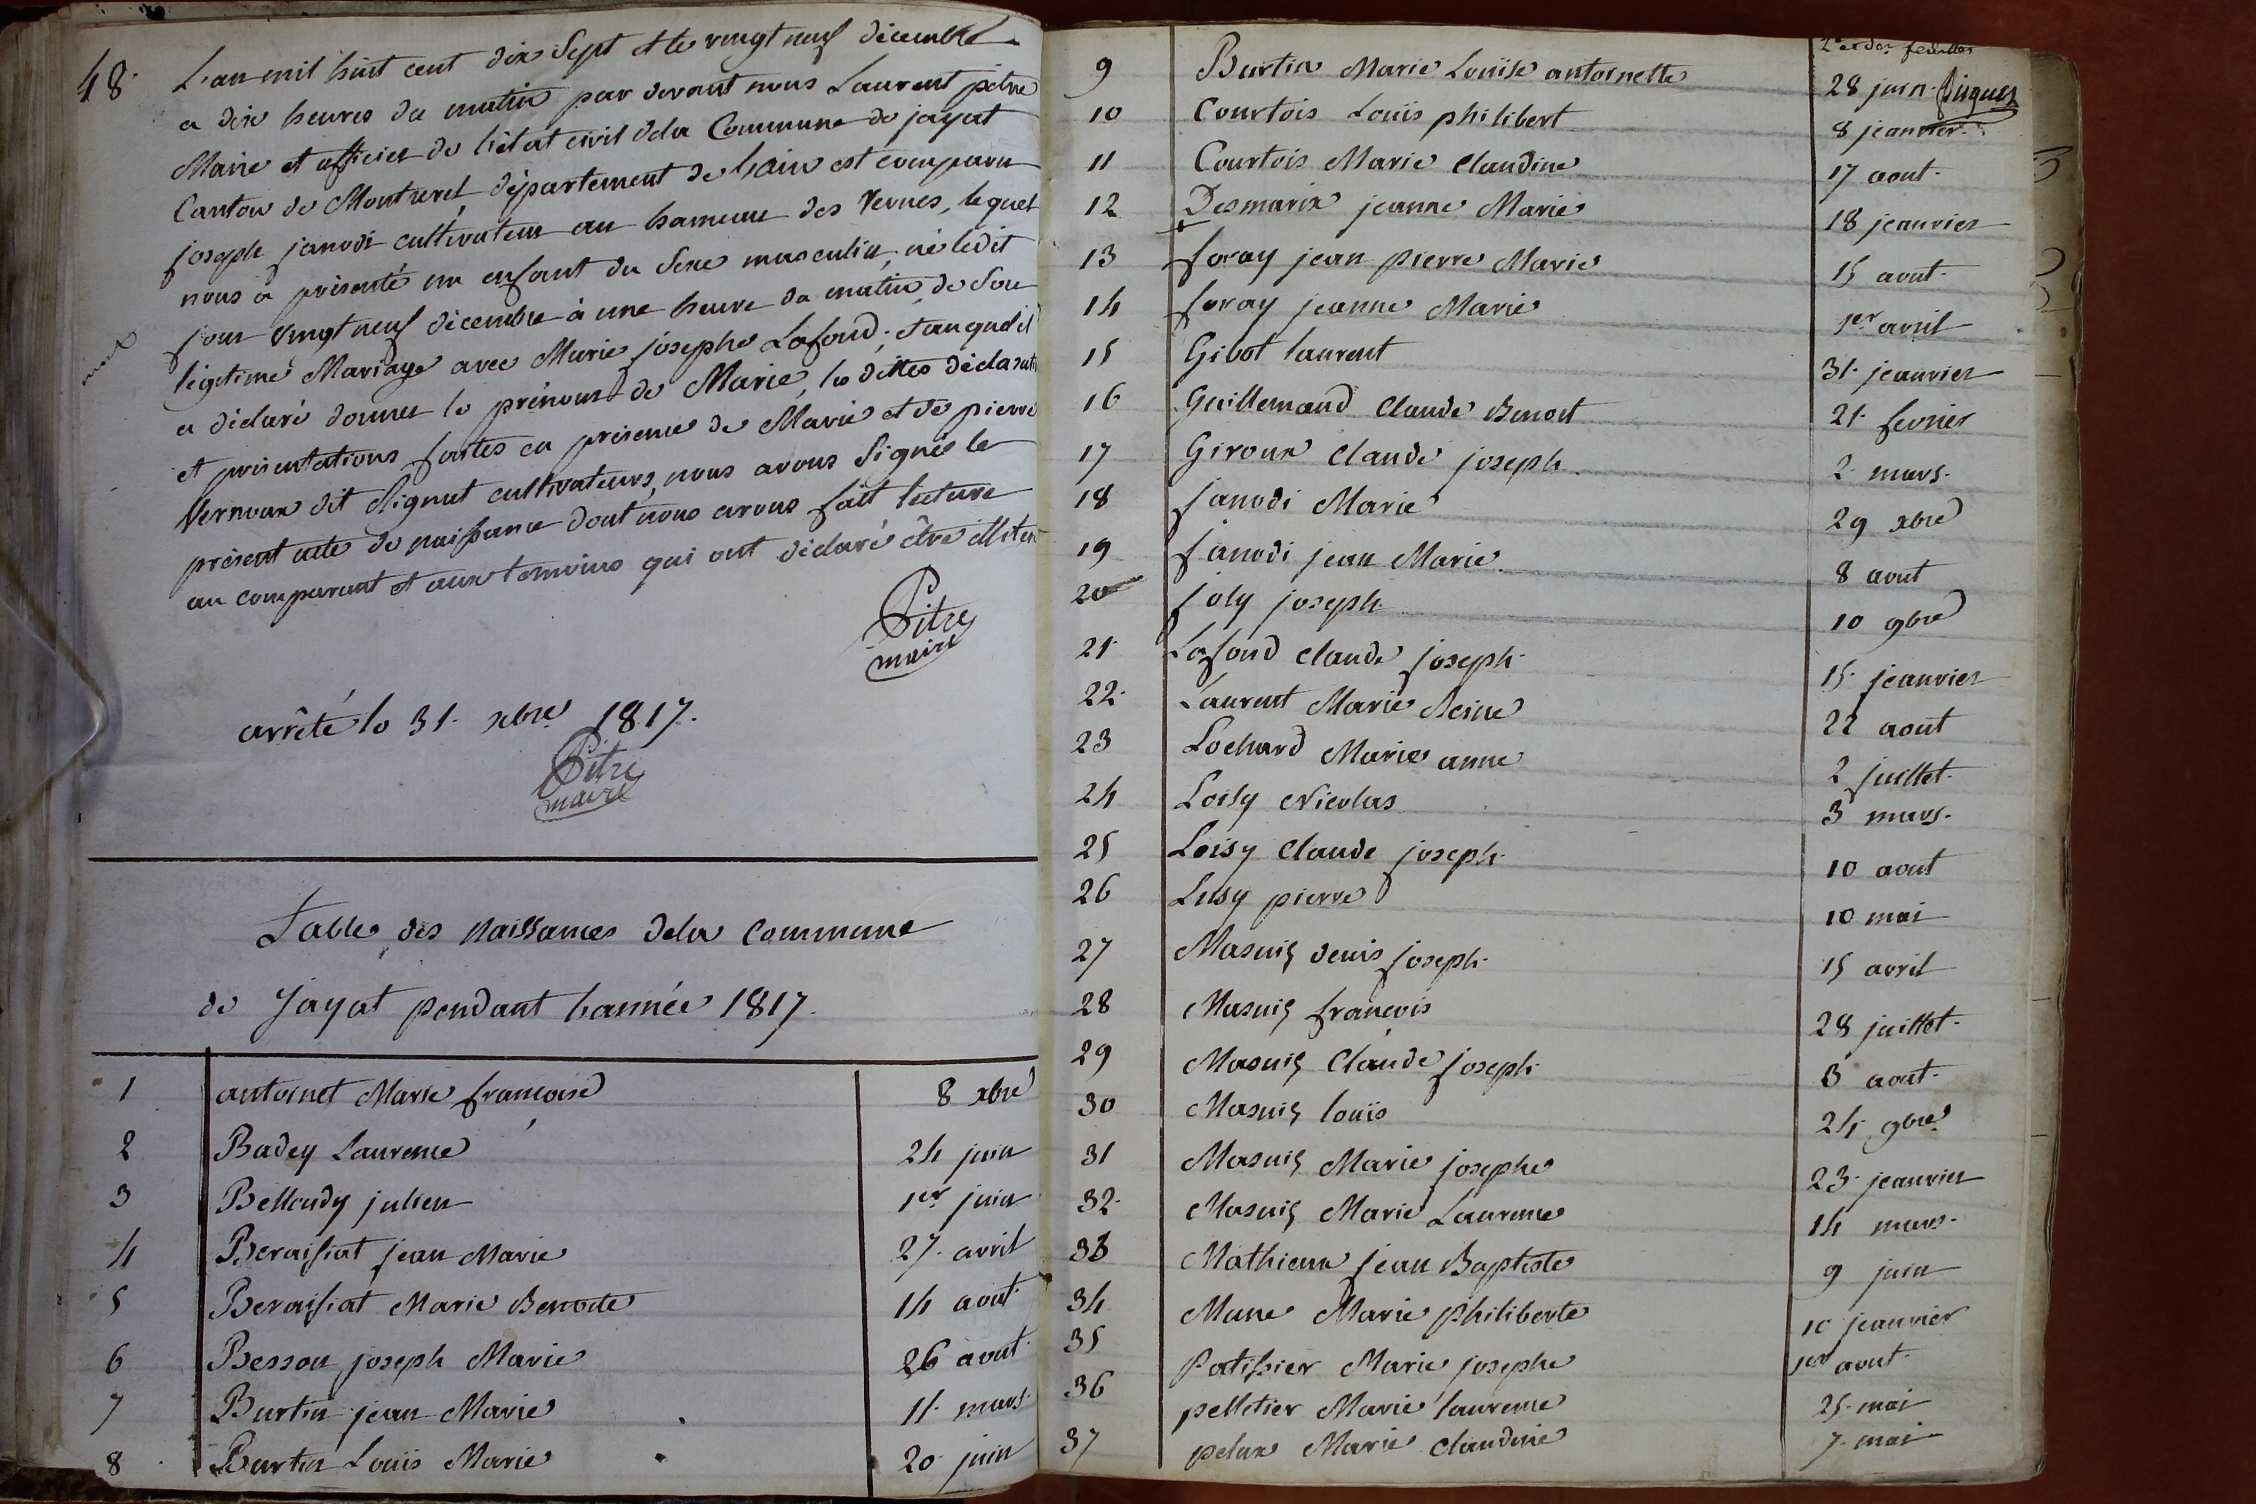 48. L'an mil huit cent dix sept et le vingt neuf décembre
a dix heures du matin par devant nous Laurent pitre
Maire et officier de l'état civil dela Commune de jayat
Canton de Montrevel, département de l'ain est comparu
joseph janodi cultivateur au hameau des Vernes, lequel
nous a présenté un enfant du sexe masculin, né ledit
jour vingt neuf décembre à une heure du matin, de son
légitime Mariage avec Marie josephe Lafond; auquel il
a déclaré donner le prénom de Marie, les dittes déclarat
et présentations faites en présence de Marie et de pierre
Vernoux dit cultivateurs, nous avons signés le
présent acte de naissance dont nous avons fait lecture
au comparant et aux temoins qui ont déclaré être illiter
Pitre
maire
arrêté le 31. xbre 1817.
Pitre
maire
Table des Naissances dela Commune
de Jayat pendant l'année 1817.
1 antoinet Marie françoise 8 xbre
2 Badey Laurence 24 juin
3 Belloudy julien 1er juin
4 Beraissiat jean Marie 27. avril
5 Beraissiat Marie Benoite 14 aout.
6 Besson joseph Marie 26 aout.
7 Burtin jean Marie 11. mars.
8 Burtin Louis Marie 20 juin
2e et der feuillet
9 Burtin Marie Louise antoinette 28 juin.
10 Courtois Louis philibert 8 jeanvier.
11 Courtois Marie Claudine 17 aout.
12 Desmarix jeanne Marie 18 jeanvier
13 foray jean pierre Marie 15 aout.
14 foray jeanne Marie 1er avril
15 Givot laurent 31. jeanvier
16 Guillemaud Claude Benoit 21. fevrier
17 Giroux Claude joseph 2. mars.
18 janodi Marie 29 xbre
19 janodi jean Marie. 8 aout
20 joly joseph 10 9bre
21. Lafond Claude joseph. 15. jeanvier
22. Laurent Marie Reine 22 aout
23 Lochard Marie anne 2 juillet.
24 Loisy Nicolas 3 mars.
25 Loisy Claude joseph. 10 aout
26 Lusy pierre 10 mai
27 Masuis denis joseph. 15 avril
28 Masuis françois 28 juillet.
29 Masuis Claude joseph. 3 aout.
30 Masuis louis 24 9bre.
31 Masuis Marie josephe 23. jeanvier
32. Masuis Marie Laurence 14 mars.
33 Mathieux jean Baptiste 9 juin
34 Mune Marie philiberte 10 jeanvier
35 Patissier Marie josephe 1er aout.
36 pelletier Marie laurence 25. mai
37 pelux Marie Claudine 7. mai